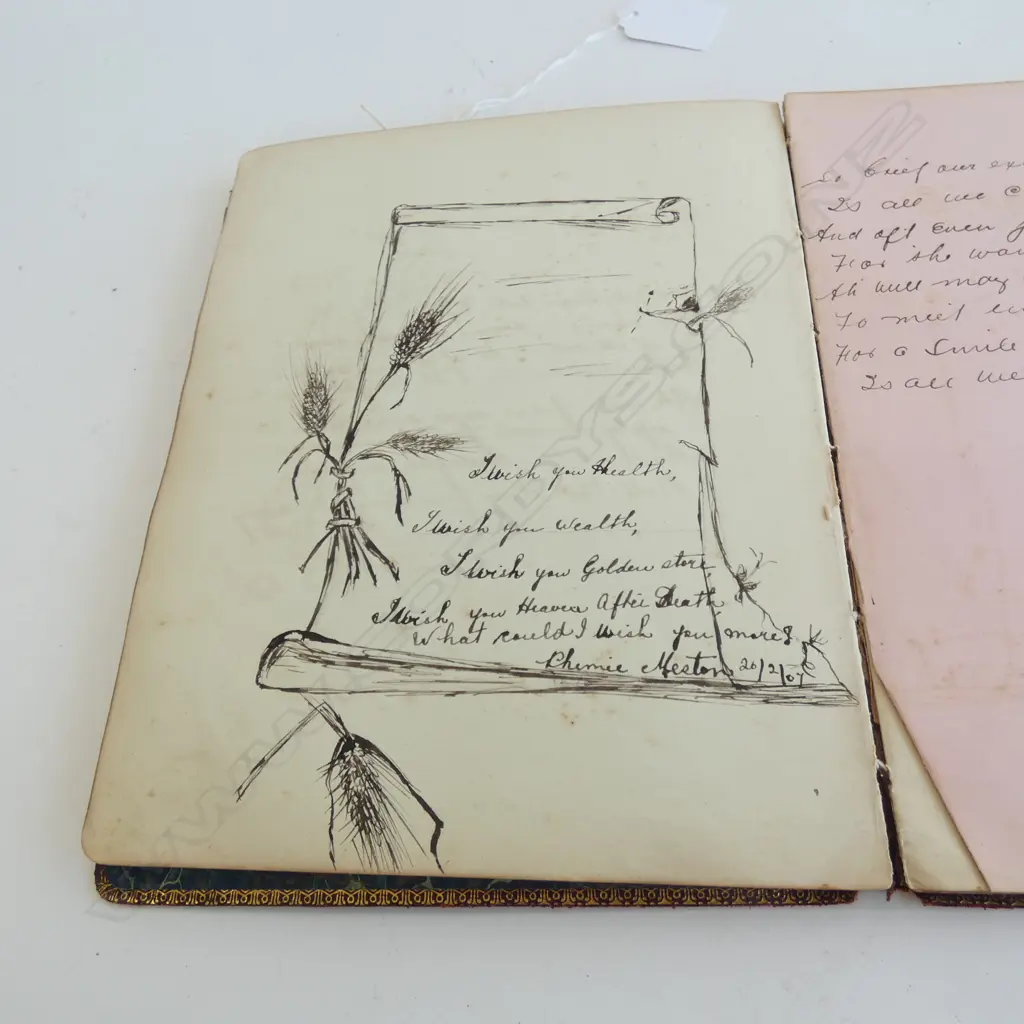 I wish you Health,
I wish you wealth,
I wish you Golden store,
I Wish you Heaven After Death,
What could I wish you more?
Phemie Meston 20/2/07
So brief our
Is all we
And oft even
For she
Ah well may
To meet
For a Smile
Is all we